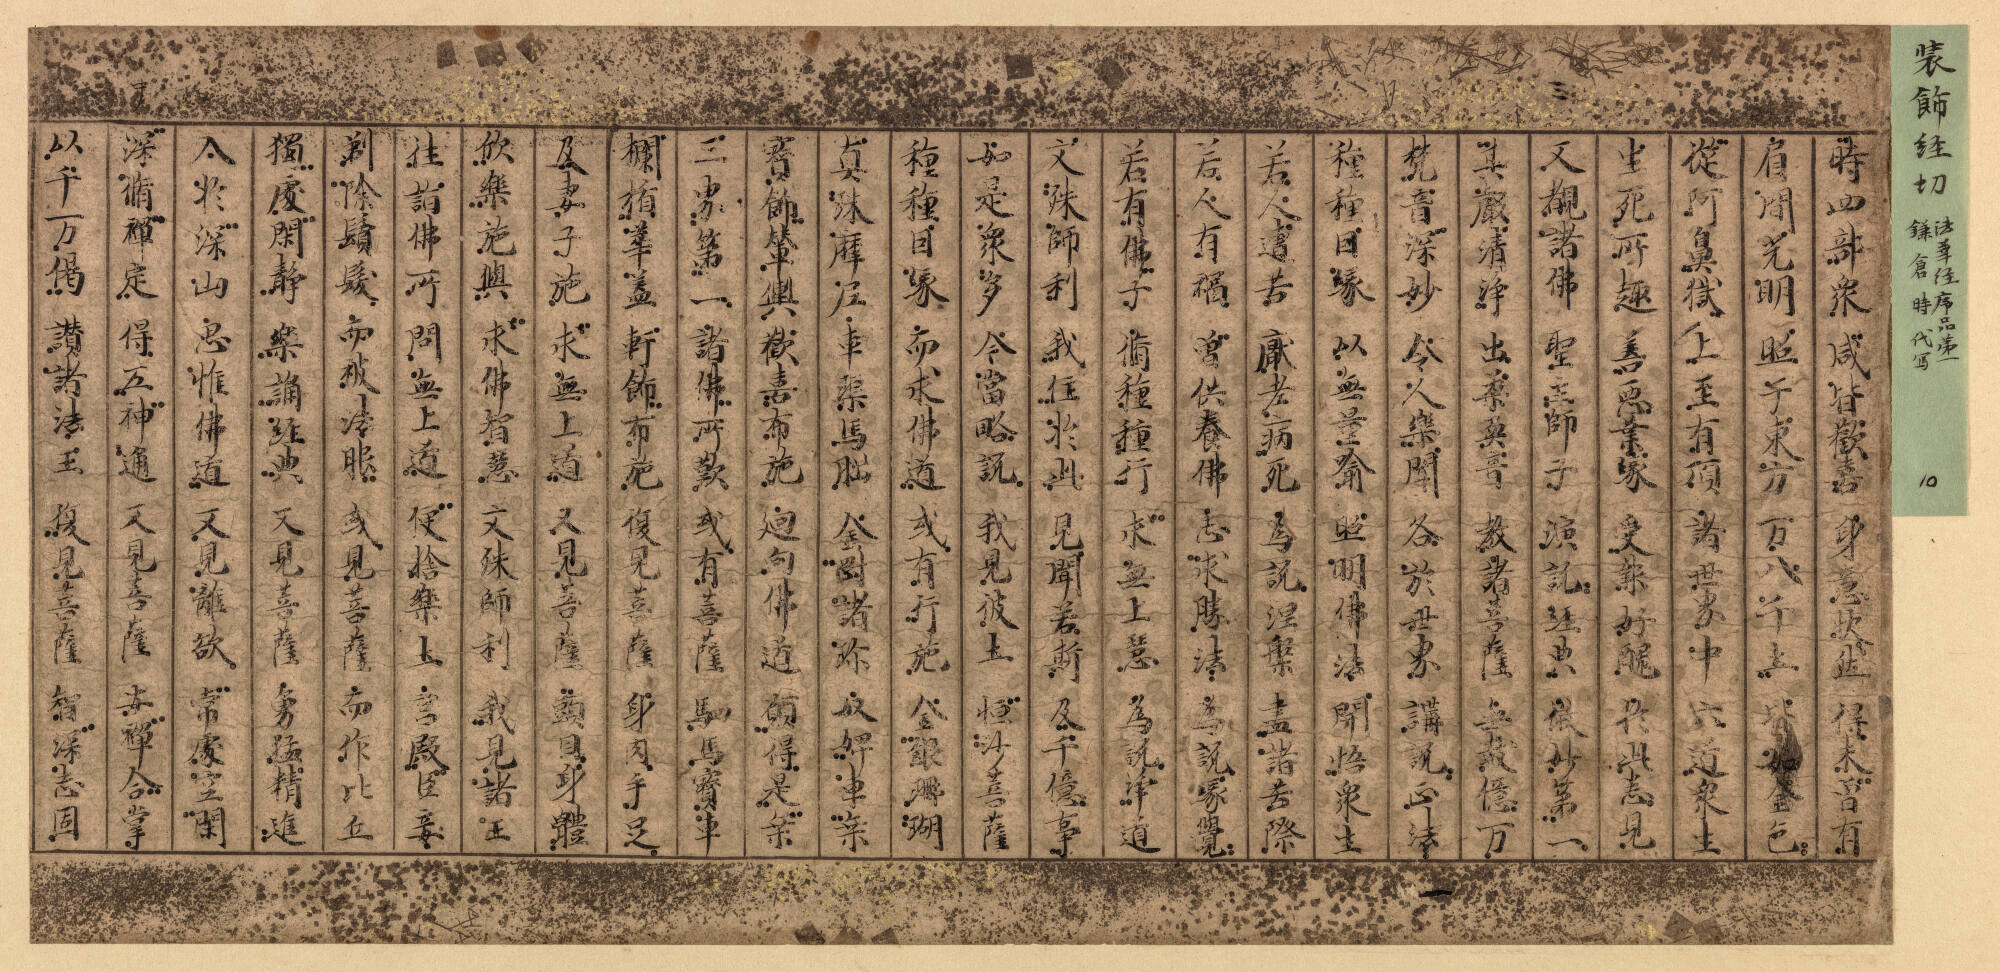 装飾経切
法華経序品第一
鎌倉時代写
10
時四部衆 咸皆歡喜 身意快然 得未曽有
眉間光明 照于東方 万八千土 皆如金色
從阿鼻獄 上至有頂 諸世界中 六道衆生
生死所趣 善惡業縁 受報好醜 於此悉見
又覩諸佛 聖主師子 演説經典 微妙第一
其聲清淨 出柔耎音 教諸菩薩 無數億万
梵音深妙 令人樂聞 各於世界 講説正法
種種因縁 以無量喻 照明佛法 開悟衆生
若人遭苦 厭老病死 為説涅槃 盡諸苦際
若人有福 曽供養佛 志求勝法 為説縁覺
若有佛子 脩種種行 求無上慧 為説淨道
文殊師利 我住於此 見聞若斯 及千億事
如是衆多 今當略説 我見彼土 恒沙菩薩
種種因縁 而求佛道 或有行施 金銀珊瑚
真珠摩尼 車𤦲馬腦 金剛諸珍 奴婢車乘
寶飾輦輿 歡喜布施 迴向佛道 願得是乘
三界第一 諸佛所歎 或有菩薩 駟馬寶車
欄楯華盖 軒飾布施 復見菩薩 身肉手足
及妻子施 求無上道 又見菩薩 頭目身體
欣樂施與 求佛智慧 文殊師利 我見諸王
往詣佛所 問無上道 便捨樂土 宮殿臣妾
剃除鬚髮 而被法服 或見菩薩 而作比丘
獨處閑靜 樂誦經典 又見菩薩 勇猛精進
入於深山 思惟佛道 又見離欲 常處空閑
深脩禪定 得五神通 又見菩薩 安禪合掌
以千万偈 讃諸法王 復見菩薩 智深志固